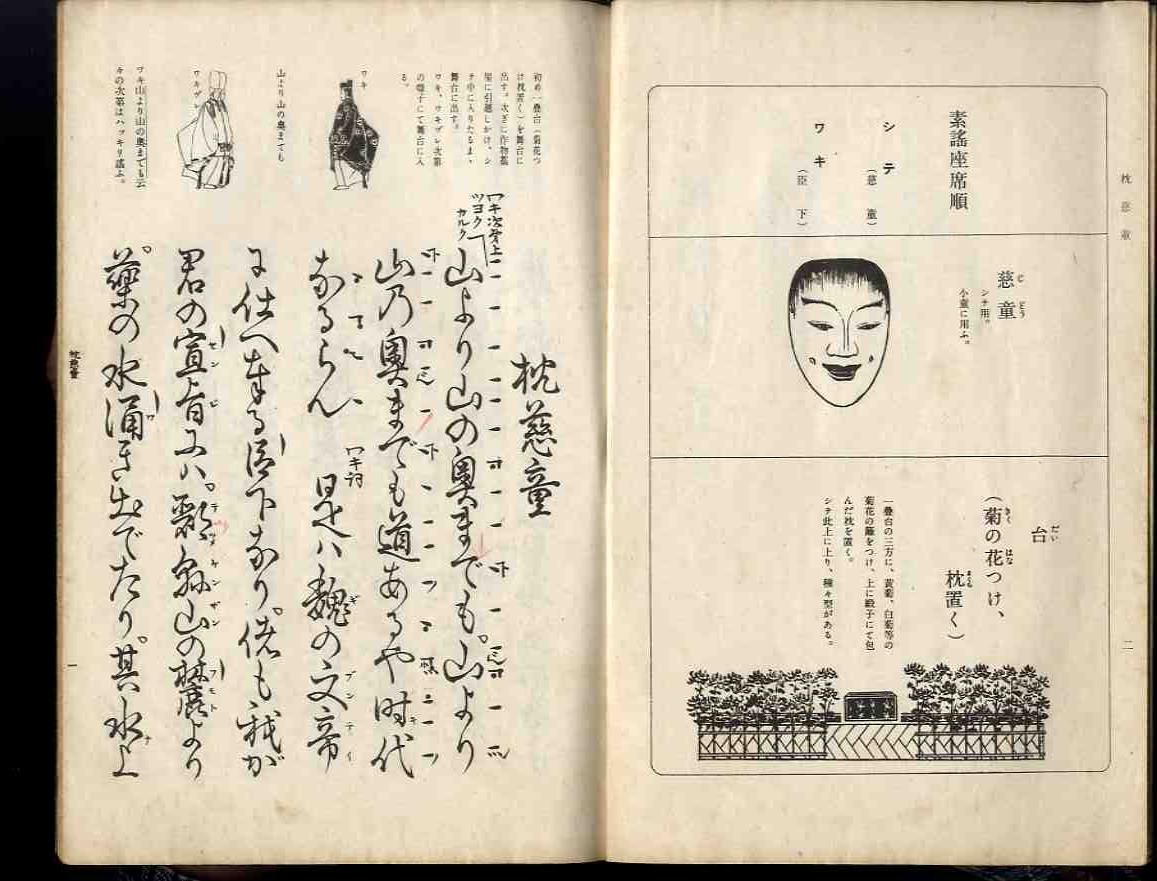 枕慈童
二
素謡座席順
シテ（慈童）
ワキ（臣下）
慈童
じどう
シテ用。
小童に用ふ。
台
だい
（菊の花つけ、
きく はな
枕置く）
まくら
一疊台の三方に、黄菊、白菊等の
菊花の籬をつけ、上に緞子にて包
んだ枕を置く。
シテ此上に上り、種々型がある。
初め一疊台（菊花つ
け枕置く）を舞台に
出す。次ぎに作物藁
屋に引廻しかけ、シ
テ中に入りたるまゝ
舞台に出す。
ワキ、ワキヅレ次第
の囃子にて舞台に入
る。
ワキ
山より山の奥までも
ワキヅレ
ワキ山より山の奥までも云
々の次第はハッキリ謡ふ。
枕慈童
ワキ次第上
ツヨク
カルク
山より山の奥までも。山より
山乃奥までも道あるや時代
なるらん
ワキ詞
是ハ魏の文帝
ギ ブンテイ
に仕へ奉る臣下なり。偖も我が
君の宣旨にハ。酈縣山の麓より
センジ テキケンザン フモト
薬の水涌き出でたり。其水上
枕慈童
一